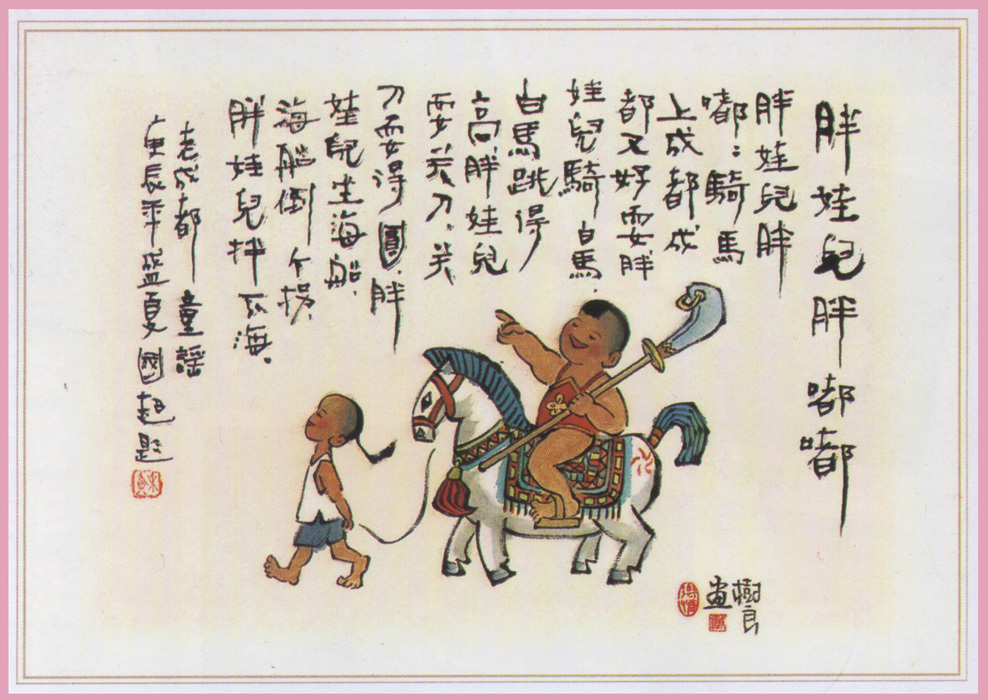 胖娃兒胖嘟嘟
胖娃兒胖
嘟:騎馬
上成都成
都又好耍胖
娃兒騎白馬.
白馬跳得
高胖娃兒
耍关刀.关
刀耍得圓.胖
娃兒坐海船.
海船倒个拐.
胖娃兒拌下海.
老成都童謡
庚辰年盛夏國起題
樹良
畫